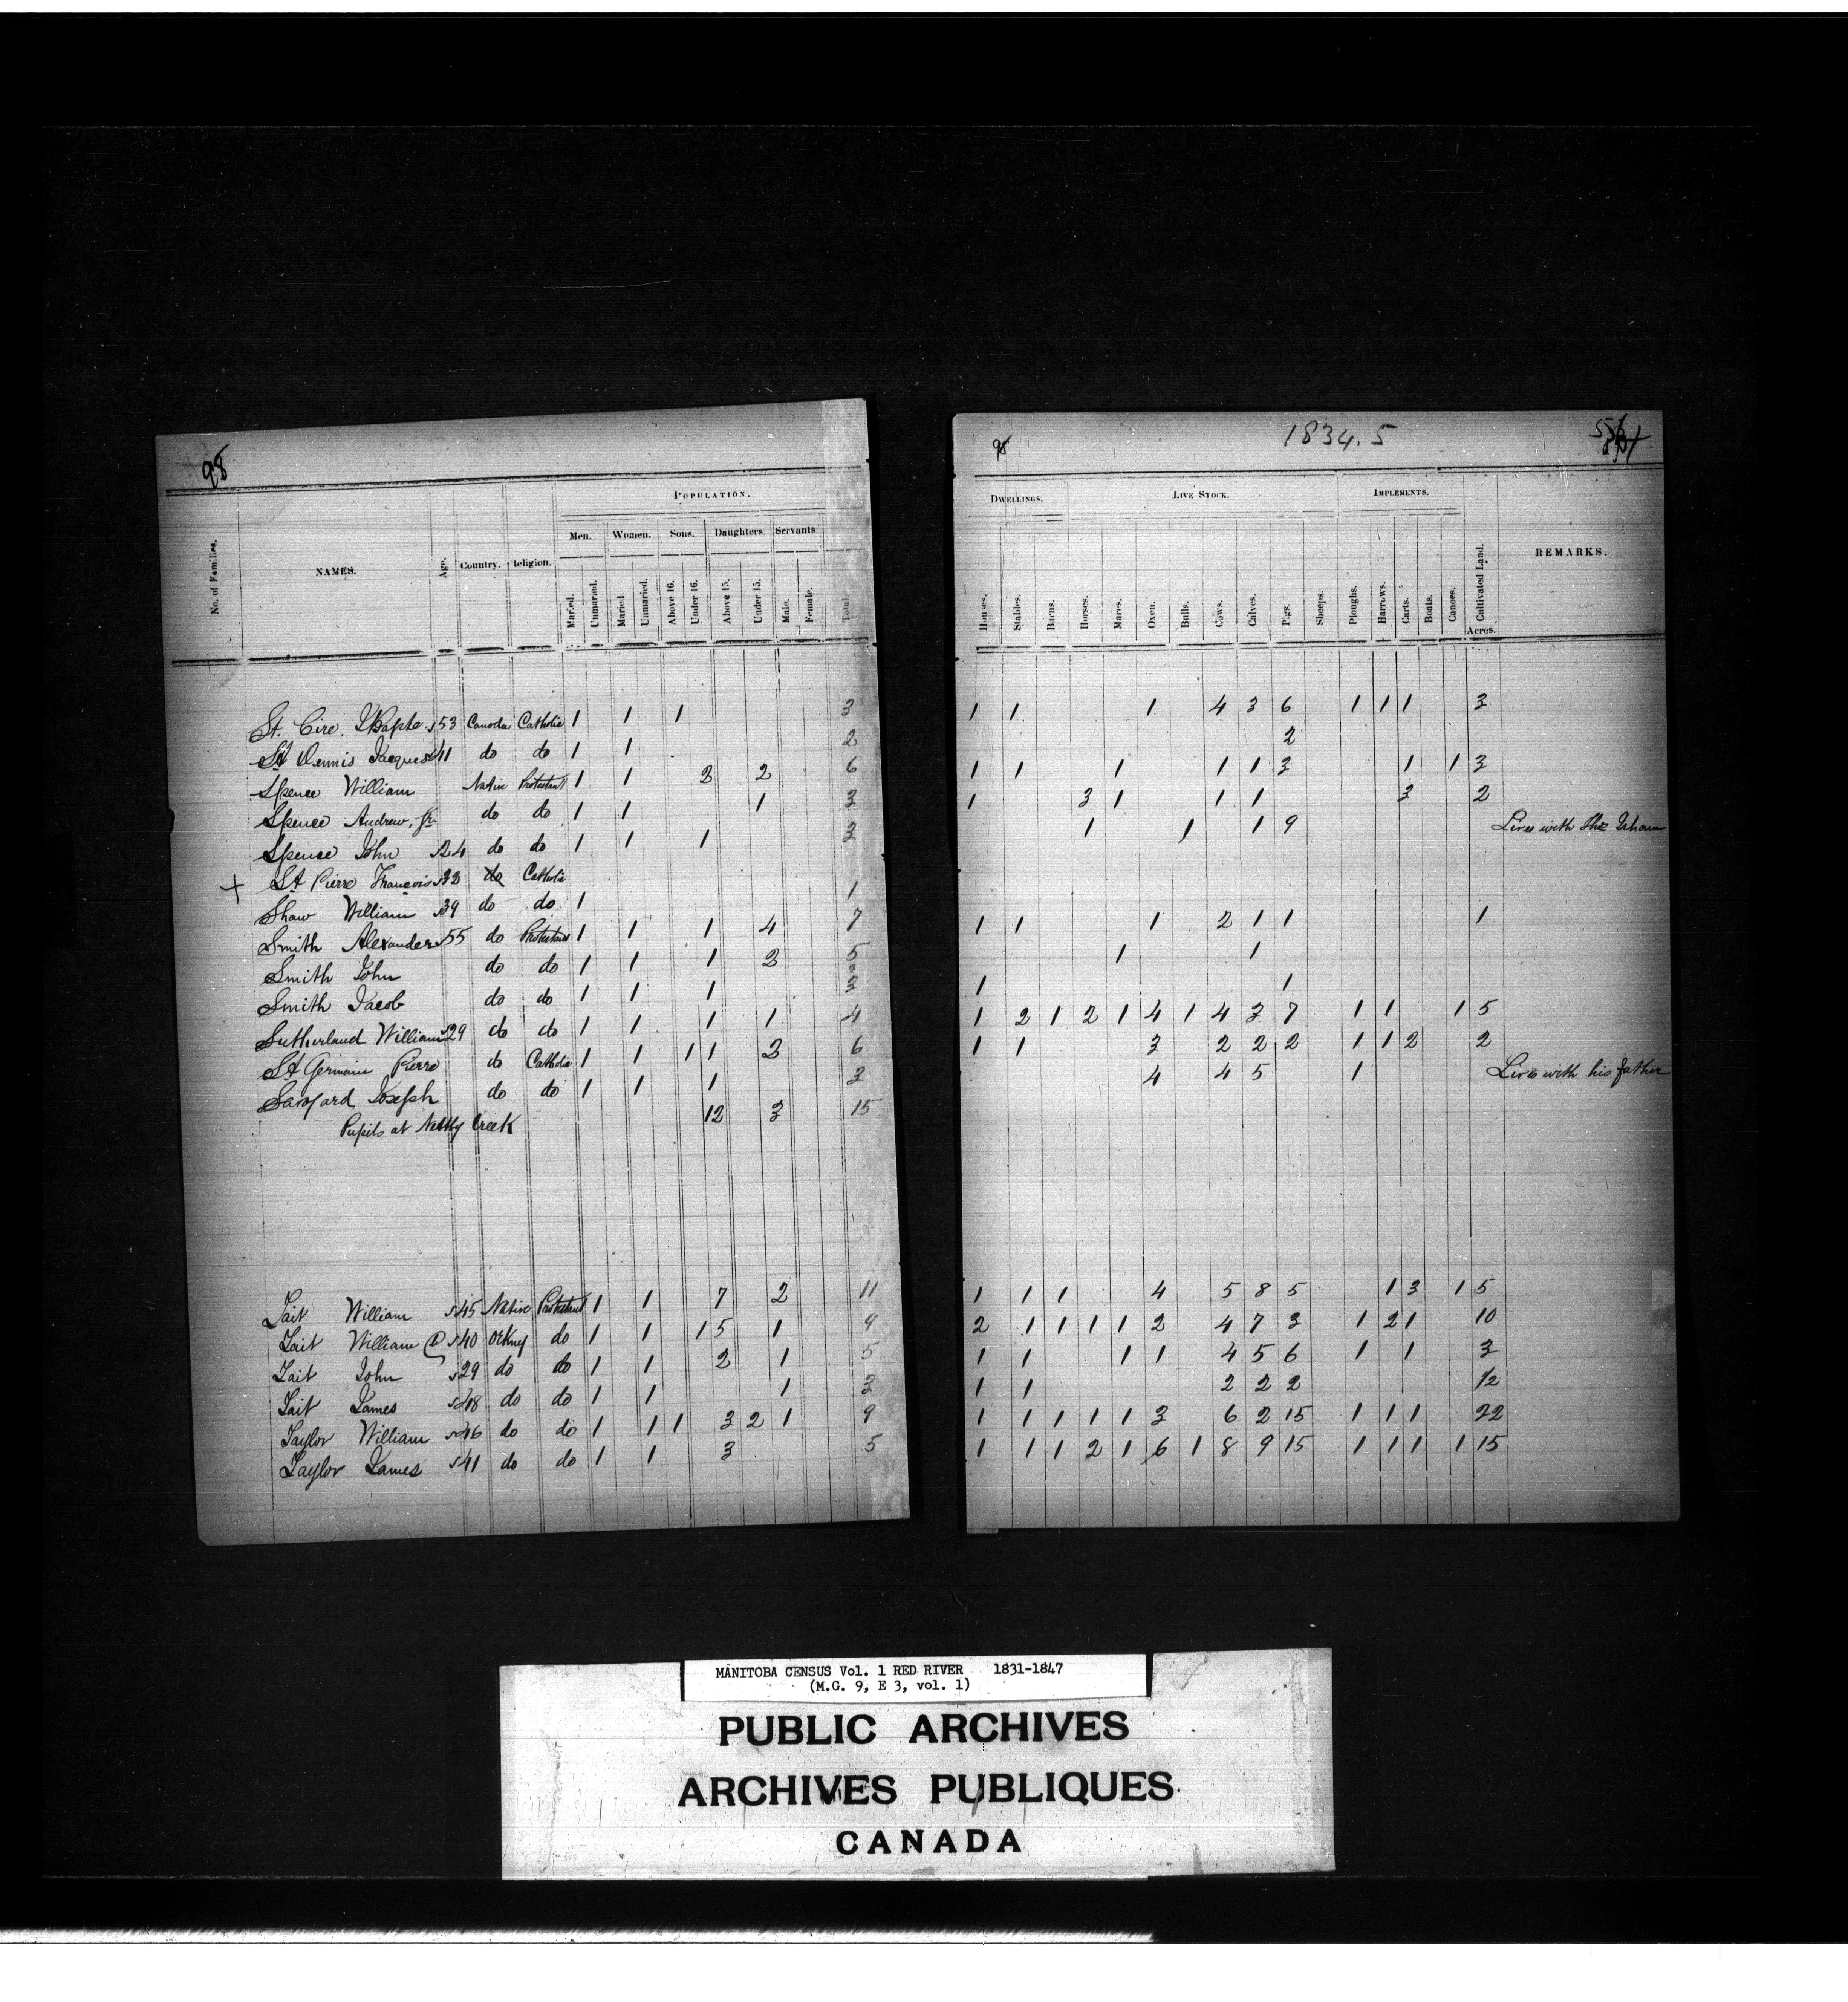 98
POPULATION.
No. of Families.
NAMES.
Age.
Country.
Religion.
Men.
Women.
Sons.
Daughters
Servants
Married.
Unmaried.
Married
Unmaried.
Above 16.
Under 16.
Above 15.
Under 15.
Male.
Female.
Total.
St. Cire. JBapte 53 Canada Catholic 1 1 1 3
St Dennis Jacques 41 do do 1 1 2
Spence William Native Protestant 1 1 2 2 6
Spence Andrew, Jr. do do 1 1 1 3
Spence John 24 do do 1 1 1 3
+ St Pierre Francois do Catholic
Shaw William 39 do do 1 1
Smith Alexander 55 do Protestant 1 1 1 4 7
Smith John do do 1 1 1 2 5
Smith Jacob do do 1 1 1 3
Sutherland William 29 do do 1 1 1 1 4
St Germain Pierre do Catholic 1 1 1 1 2 6
Savoyard Joseph do do 1 1 1 3
Pupils at Creek 12 3 15
Tait William 45 Native Protestant 1 1 7 2 11
Tait William 40 Orkney do 1 1 1 5 1 9
Tait John 29 do do 1 1 2 1 5
Tait James do do 1 1 1 3
Taylor William 46 do do 1 1 1 3 2 1 9
Taylor James 41 do do 1 1 3 5
98
1834.5
DWELLINGS.
LIVE STOCK.
IMPLEMENTS.
Houses.
Stables.
Barns.
Horses.
Mares.
Oxen.
Bulls.
Cows.
Calves.
Pigs.
Sheeps.
Ploughs.
Harrows.
Carts.
Boats.
Canoes.
Cultivated Land.
Acres.
REMARKS.
1 1 1 4 3 6 1 1 1 3
2
1 1 1 1 1 3 1 1 3
1 3 1 1 1 3 2
1 1 1 9 Lives with
1 1 1 2 1 1 1
1 1
1 1
1 2 1 2 1 4 1 4 3 7 1 1 1 5
1 1 3 2 2 2 1 1 2 2
4 4 5 1 Lives with his father
1 1 1 4 5 8 5 1 3 1 5
2 1 1 1 1 2 4 7 3 1 2 1 10
1 1 1 1 4 5 6 1 1 3
1 1 2 2 2 12
1 1 1 1 1 3 6 2 15 1 1 1 22
1 1 1 2 1 6 1 8 9 15 1 1 1 1 15
MANITOBA CENSUS Vol. 1 RED RIVER 1831-1847
(M.G. 9, E 3, vol. 1)
PUBLIC ARCHIVES
ARCHIVES PUBLIQUES
CANADA